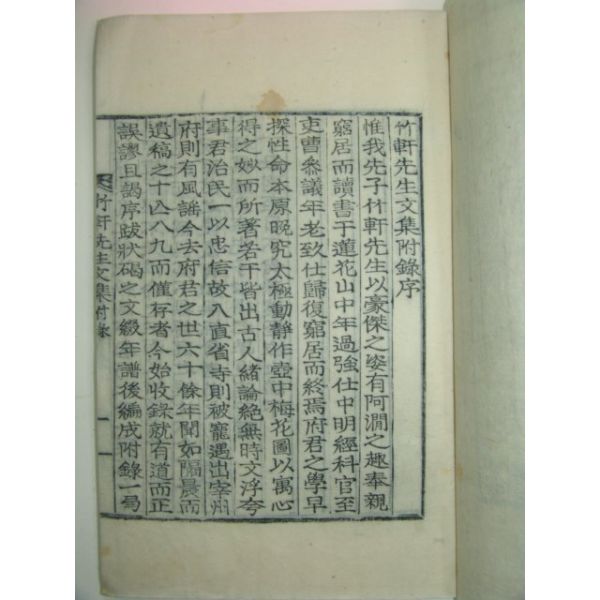 竹軒先生文集附錄序
惟我先子竹軒先生以豪傑之姿有阿澗之趣奉親
窮居而讀書于蓮花山中年過強仕中明經科官至
吏曹叅議年老致仕歸復窮居而終焉府君之學早
探性命本原晚究太極動靜作壺中梅花圖以寓心
得之妙而所著若干皆出古人緒論絶無時文浮夸
事君治民一以忠信故入直省寺則被寵遇出宰州
府則有風謡今去府君之世六十餘年聞如隔晨而
遺稿之十亾八九而僅存者今始收錄就有道而正
誤謬且謁序跋狀碣之文綴年譜後編成附錄一局
竹軒先生文集附錄 一